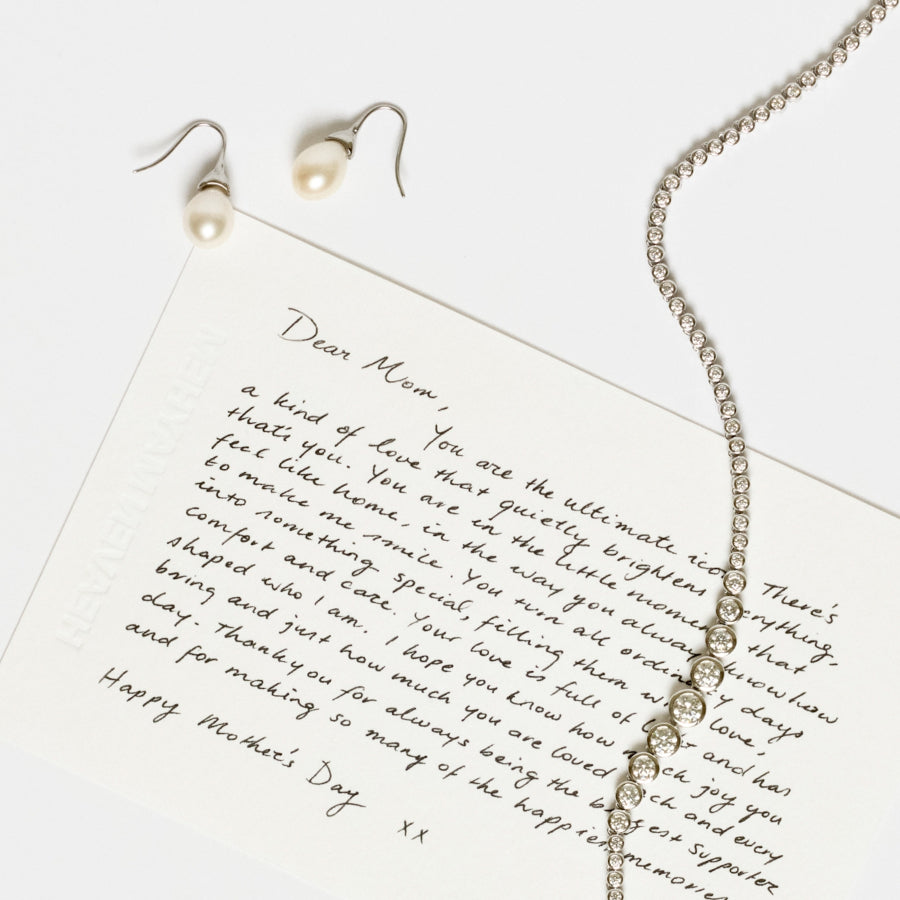 Dear Mom,
You are the ultimate icon. There's
a kind of love that quietly brightens everything,
that's you. You are in the little moments that
feel like home, in the way you always know how
to make me smile. You turn all ordinary days
into something special, filling them with love,
comfort and care. Your love is full of and has
shaped who I am. I hope you know how much joy you
bring and just how much you are loved each and every
day. Thank you for always being the biggest supporter
and for making so many of the happiest memories
Happy Mother's Day
xx